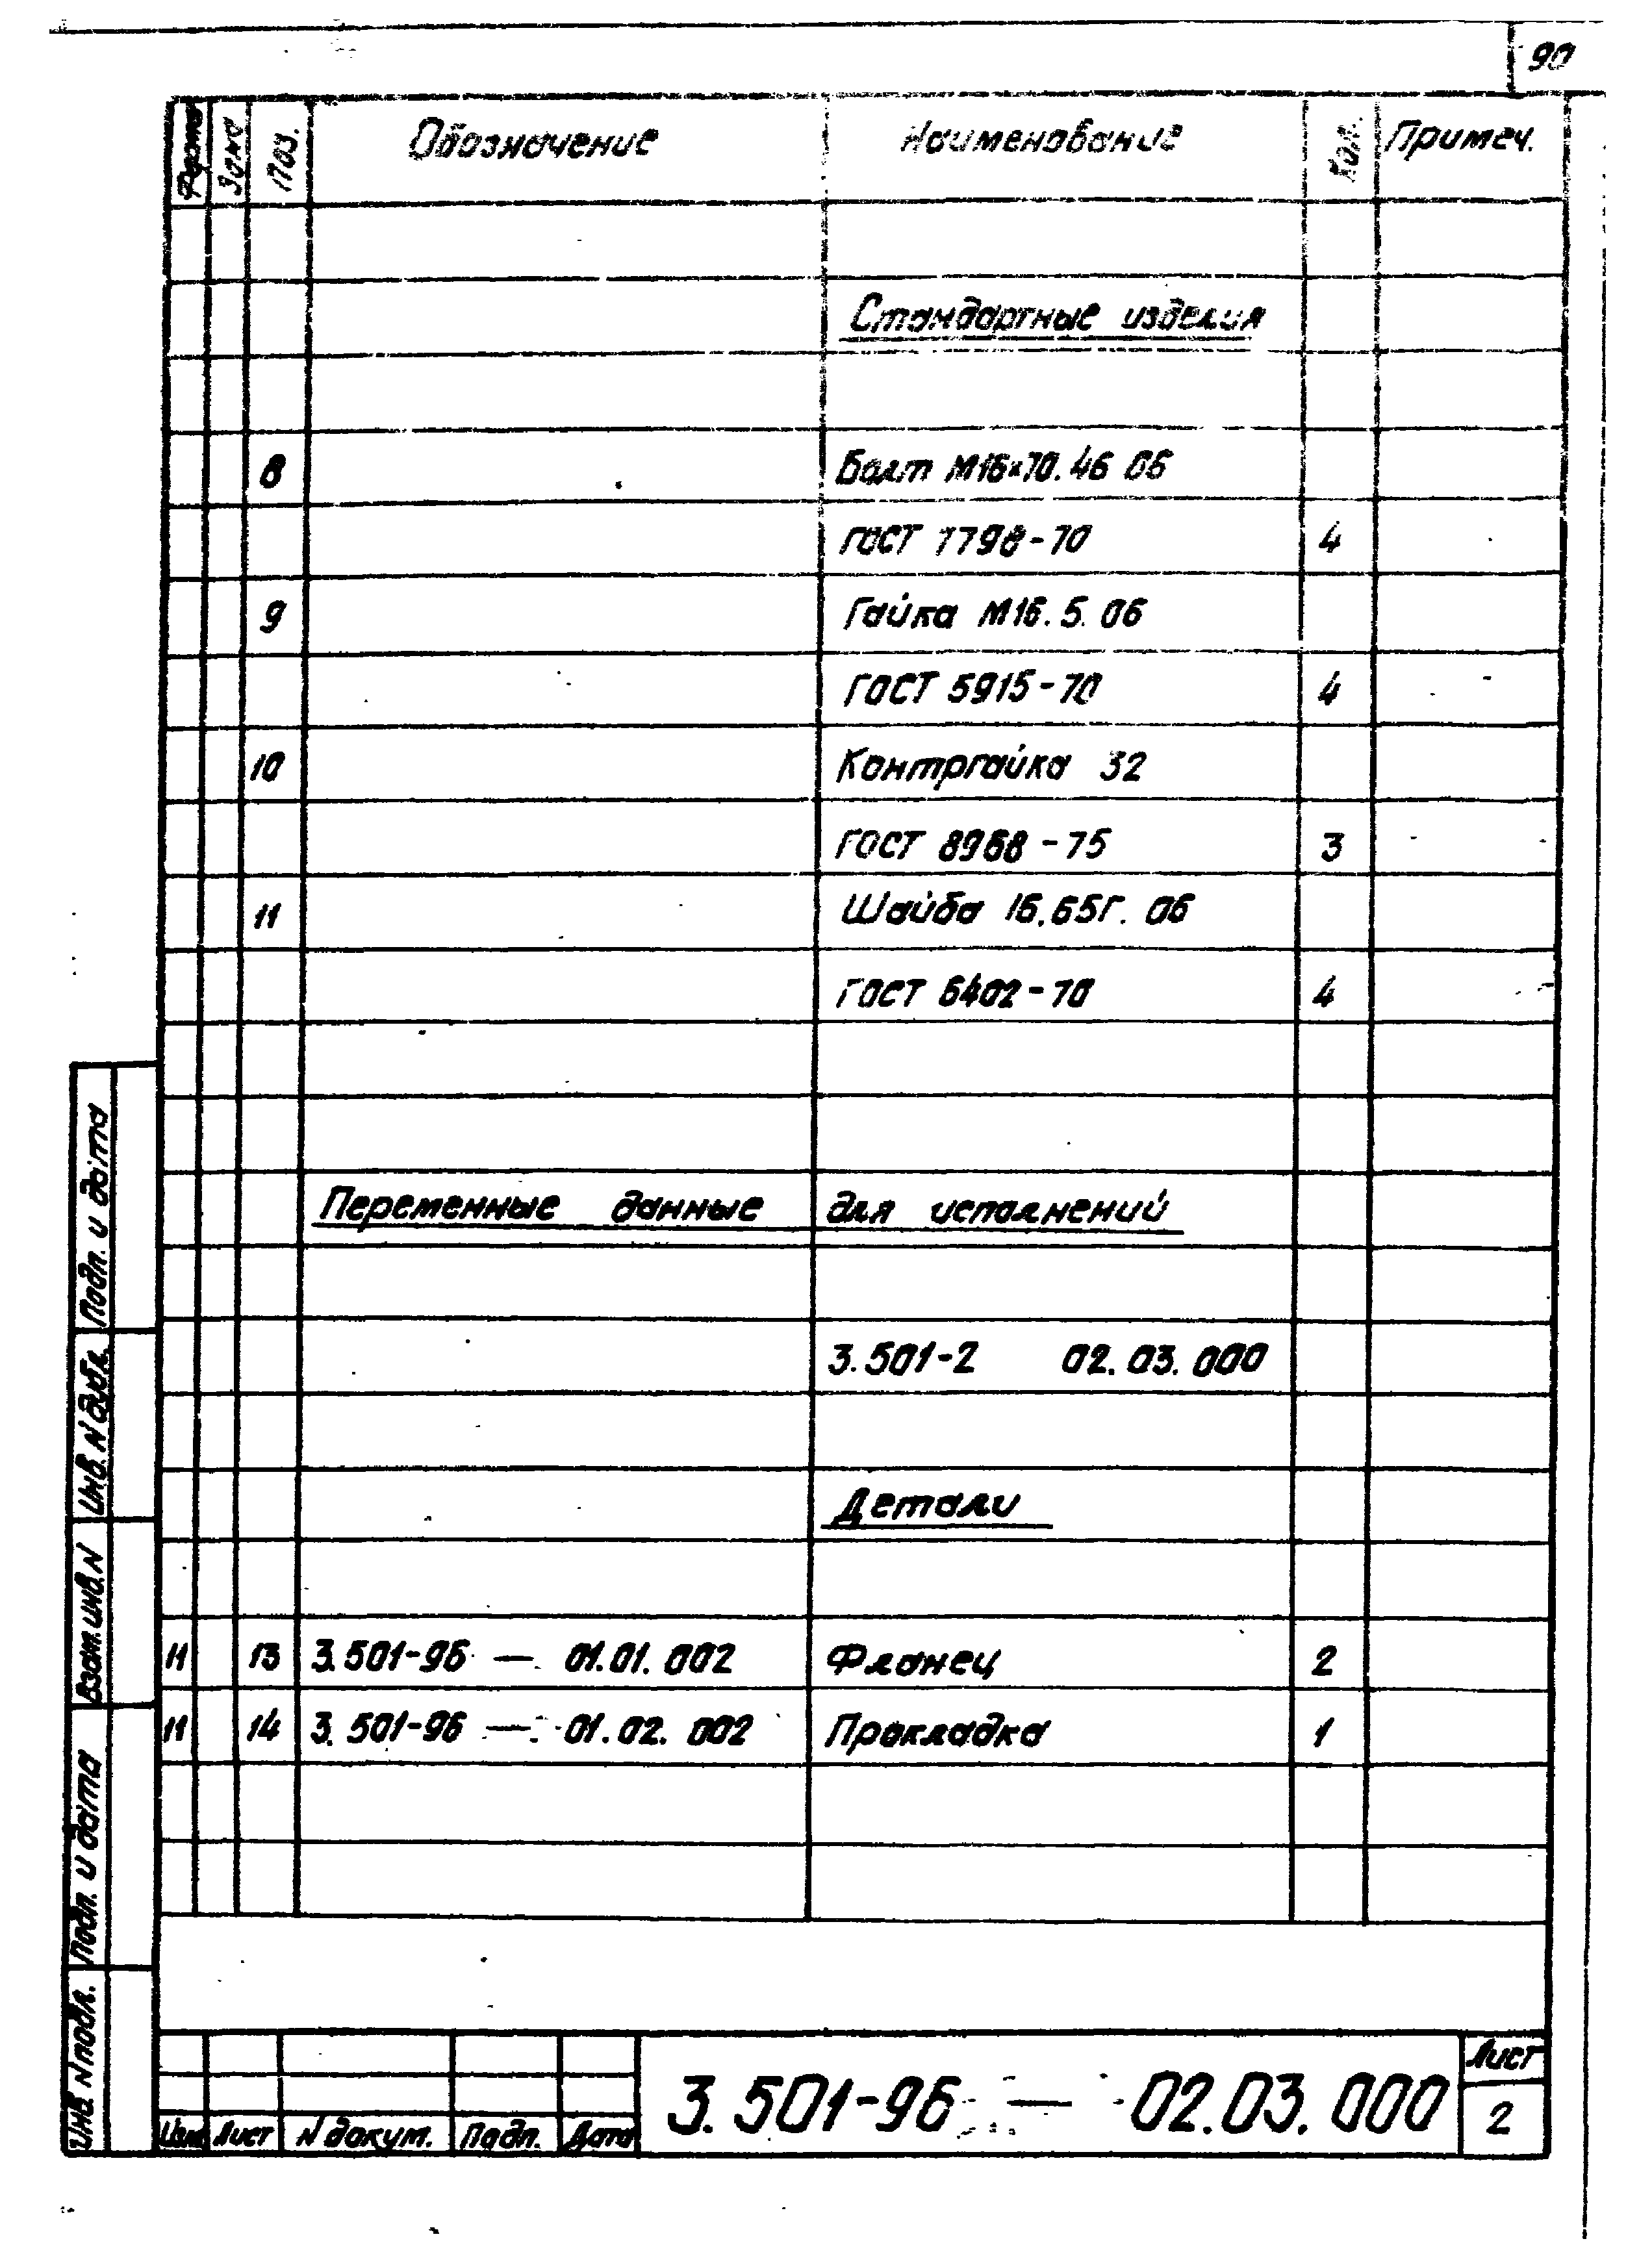 90
Формат Зона Поз. Обозначение Наименование Кол. Примеч.
Стандартные изделия
8 Болт М16×70.46 06
ГОСТ 7798-70 4
9 Гайка М16.5.06
ГОСТ 5915-70 4
10 Контргайка 32
ГОСТ 8968-75 3
11 Шайба 16.65Г.06
ГОСТ 6402-70 4
Переменные данные для исполнений
3.501-2 02.03.000
Детали
11 13 3.501-96 — 01.01.002 Фланец 2
11 14 3.501-96 — 01.02.002 Прокладка 1
Подп. и дата
Инв. N дубл.
Взам. инв. N
Подп. и дата
Инв. N подл.
Изм Лист N докум. Подп. Дата
3.501-96 — 02.03.000
Лист
2